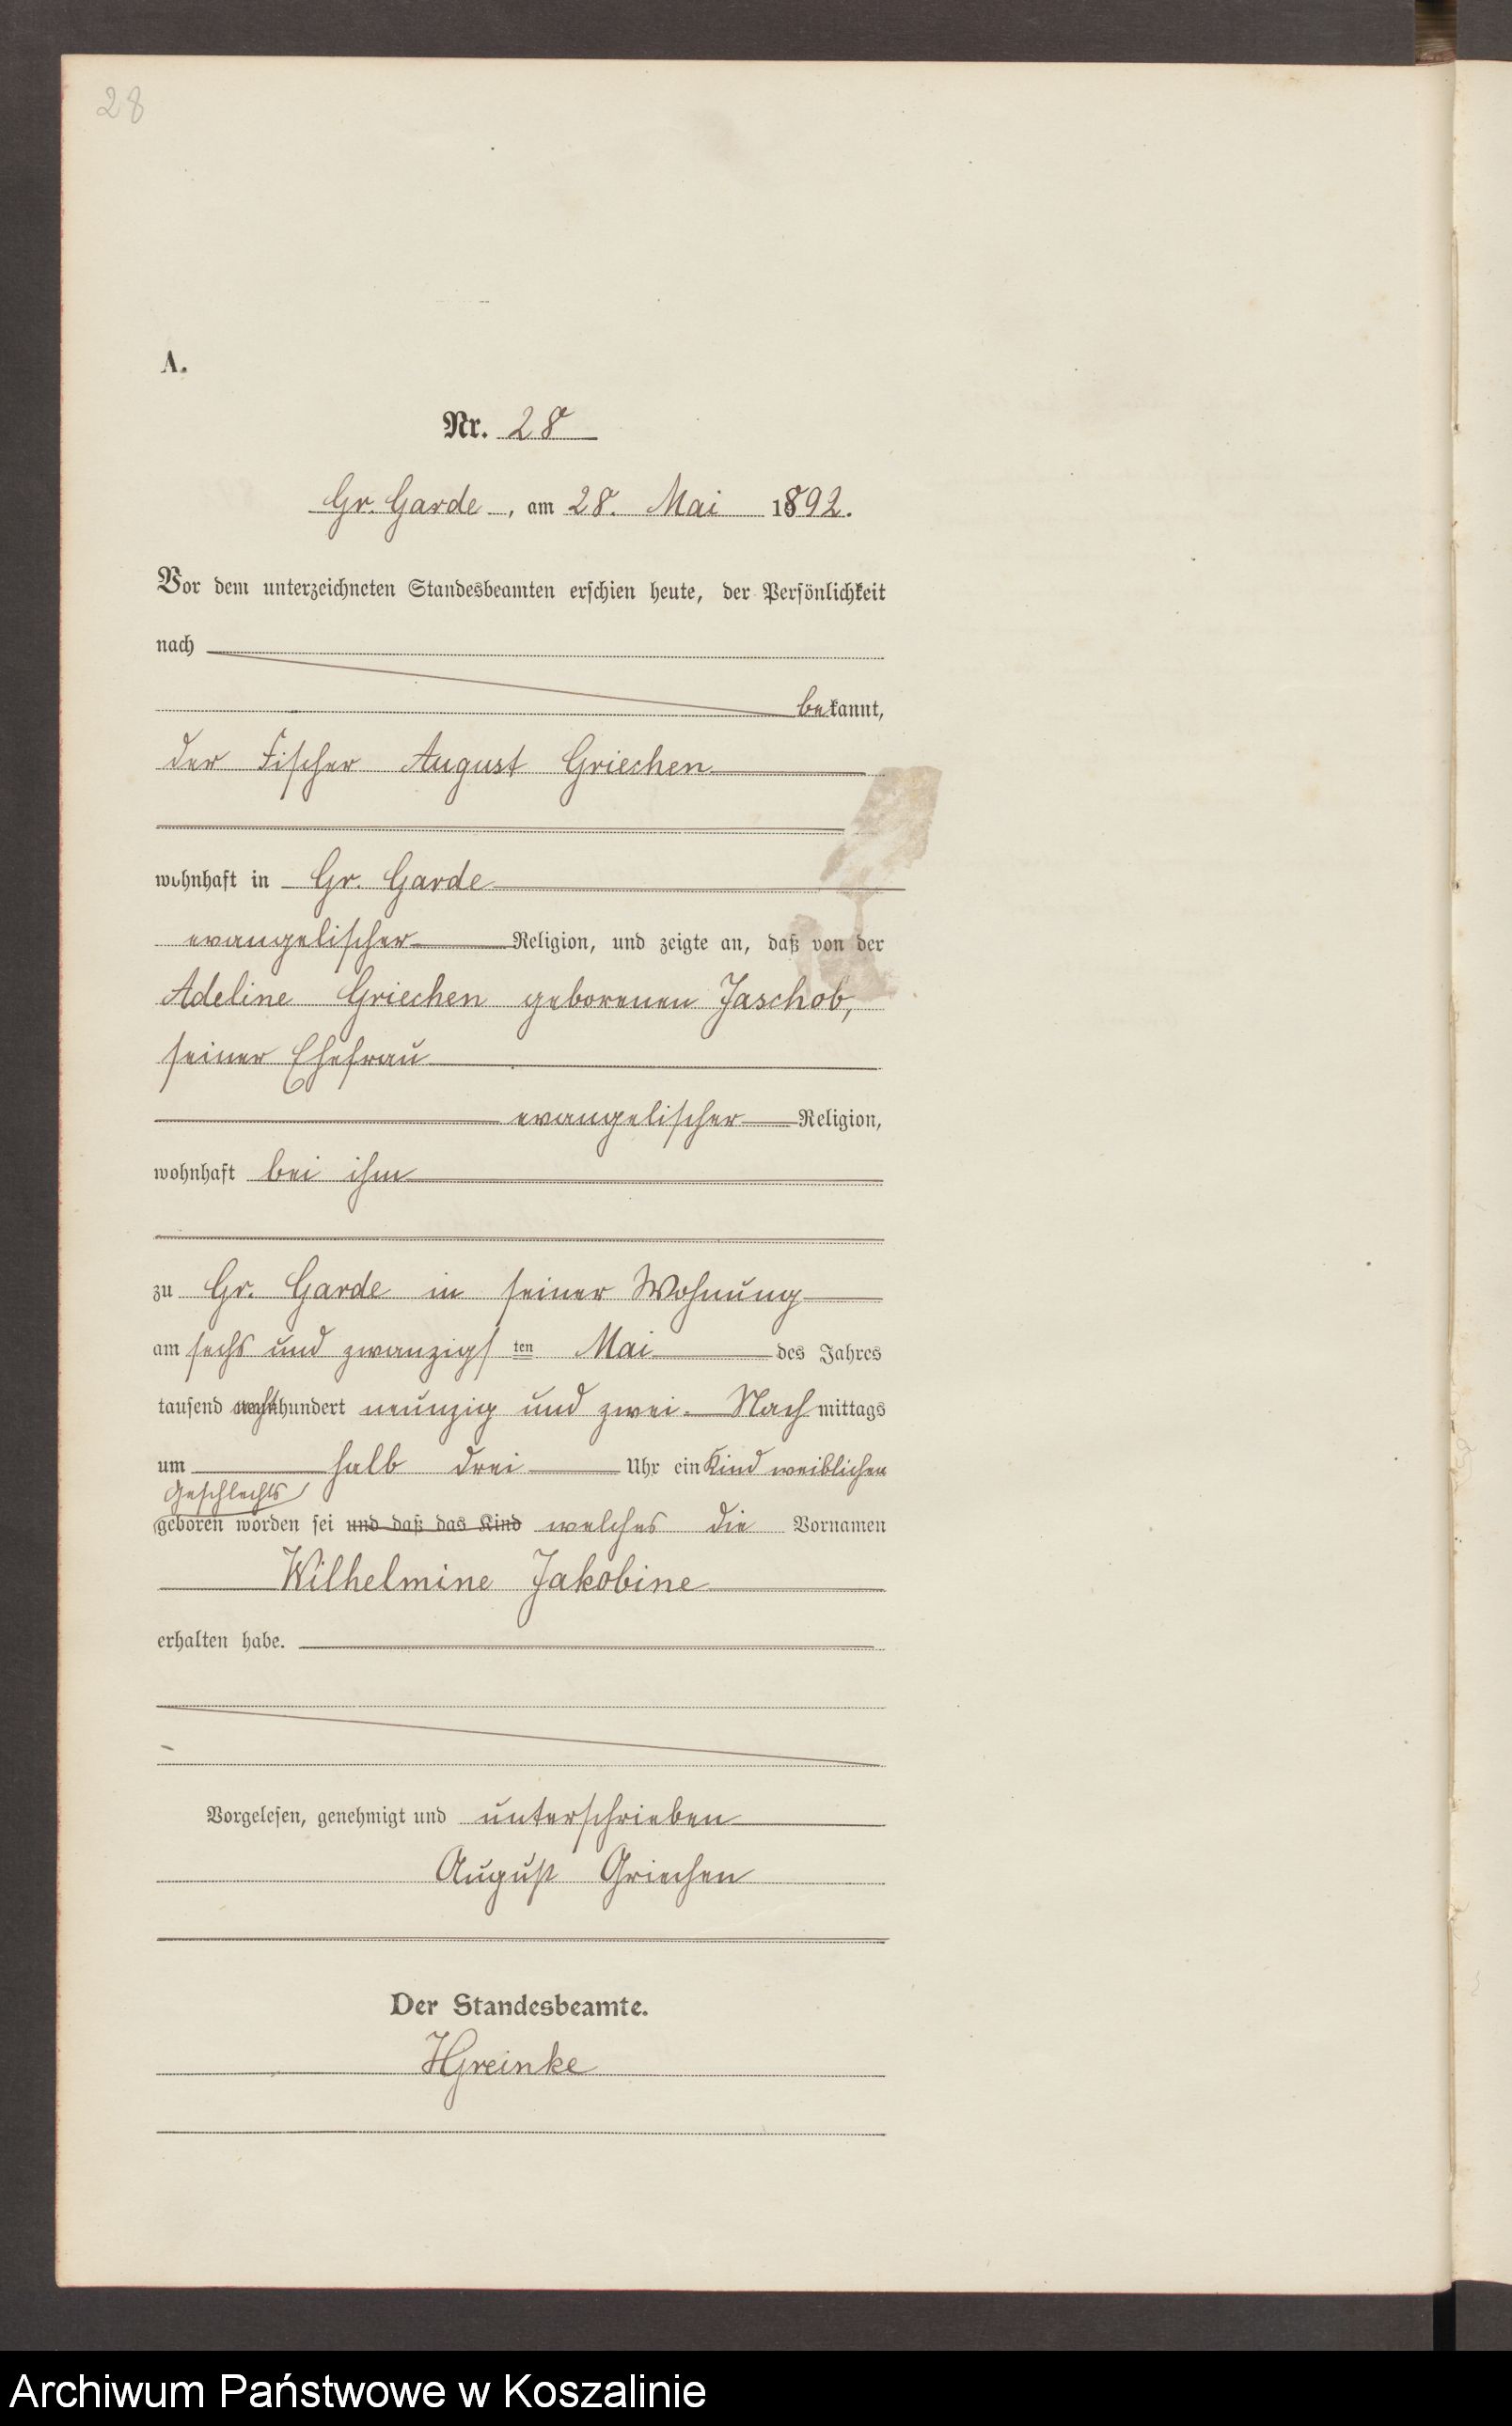 28
A.
Nr. 28
Gr. Garde, am 28. Mai 1892.
Vor dem unterzeichneten Standesbeamten erschien heute, der Persönlichkeit
nach
bekannt,
der Fischer August Griechen
wohnhaft in Gr. Garde
evangelischer Religion, und zeigte an, daß von der
Adeline Griechen geborenen Jaschob,
seiner Ehefrau
evangelischer Religion,
wohnhaft bei ihm
zu Gr. Garde in seiner Wohnung
am sechs und zwanzigsten Mai des Jahres
tausend achthundert neunzig und zwei. Nachmittags
um halb drei Uhr ein Kind weiblichen
Geschlechts
geboren worden sei und daß das Kind welches die Vornamen
Wilhelmine Jakobine
erhalten habe.
Vorgelesen, genehmigt und unterschrieben
August Griechen
Der Standesbeamte.
HGreinke
Archiwum Państwowe w Koszalinie